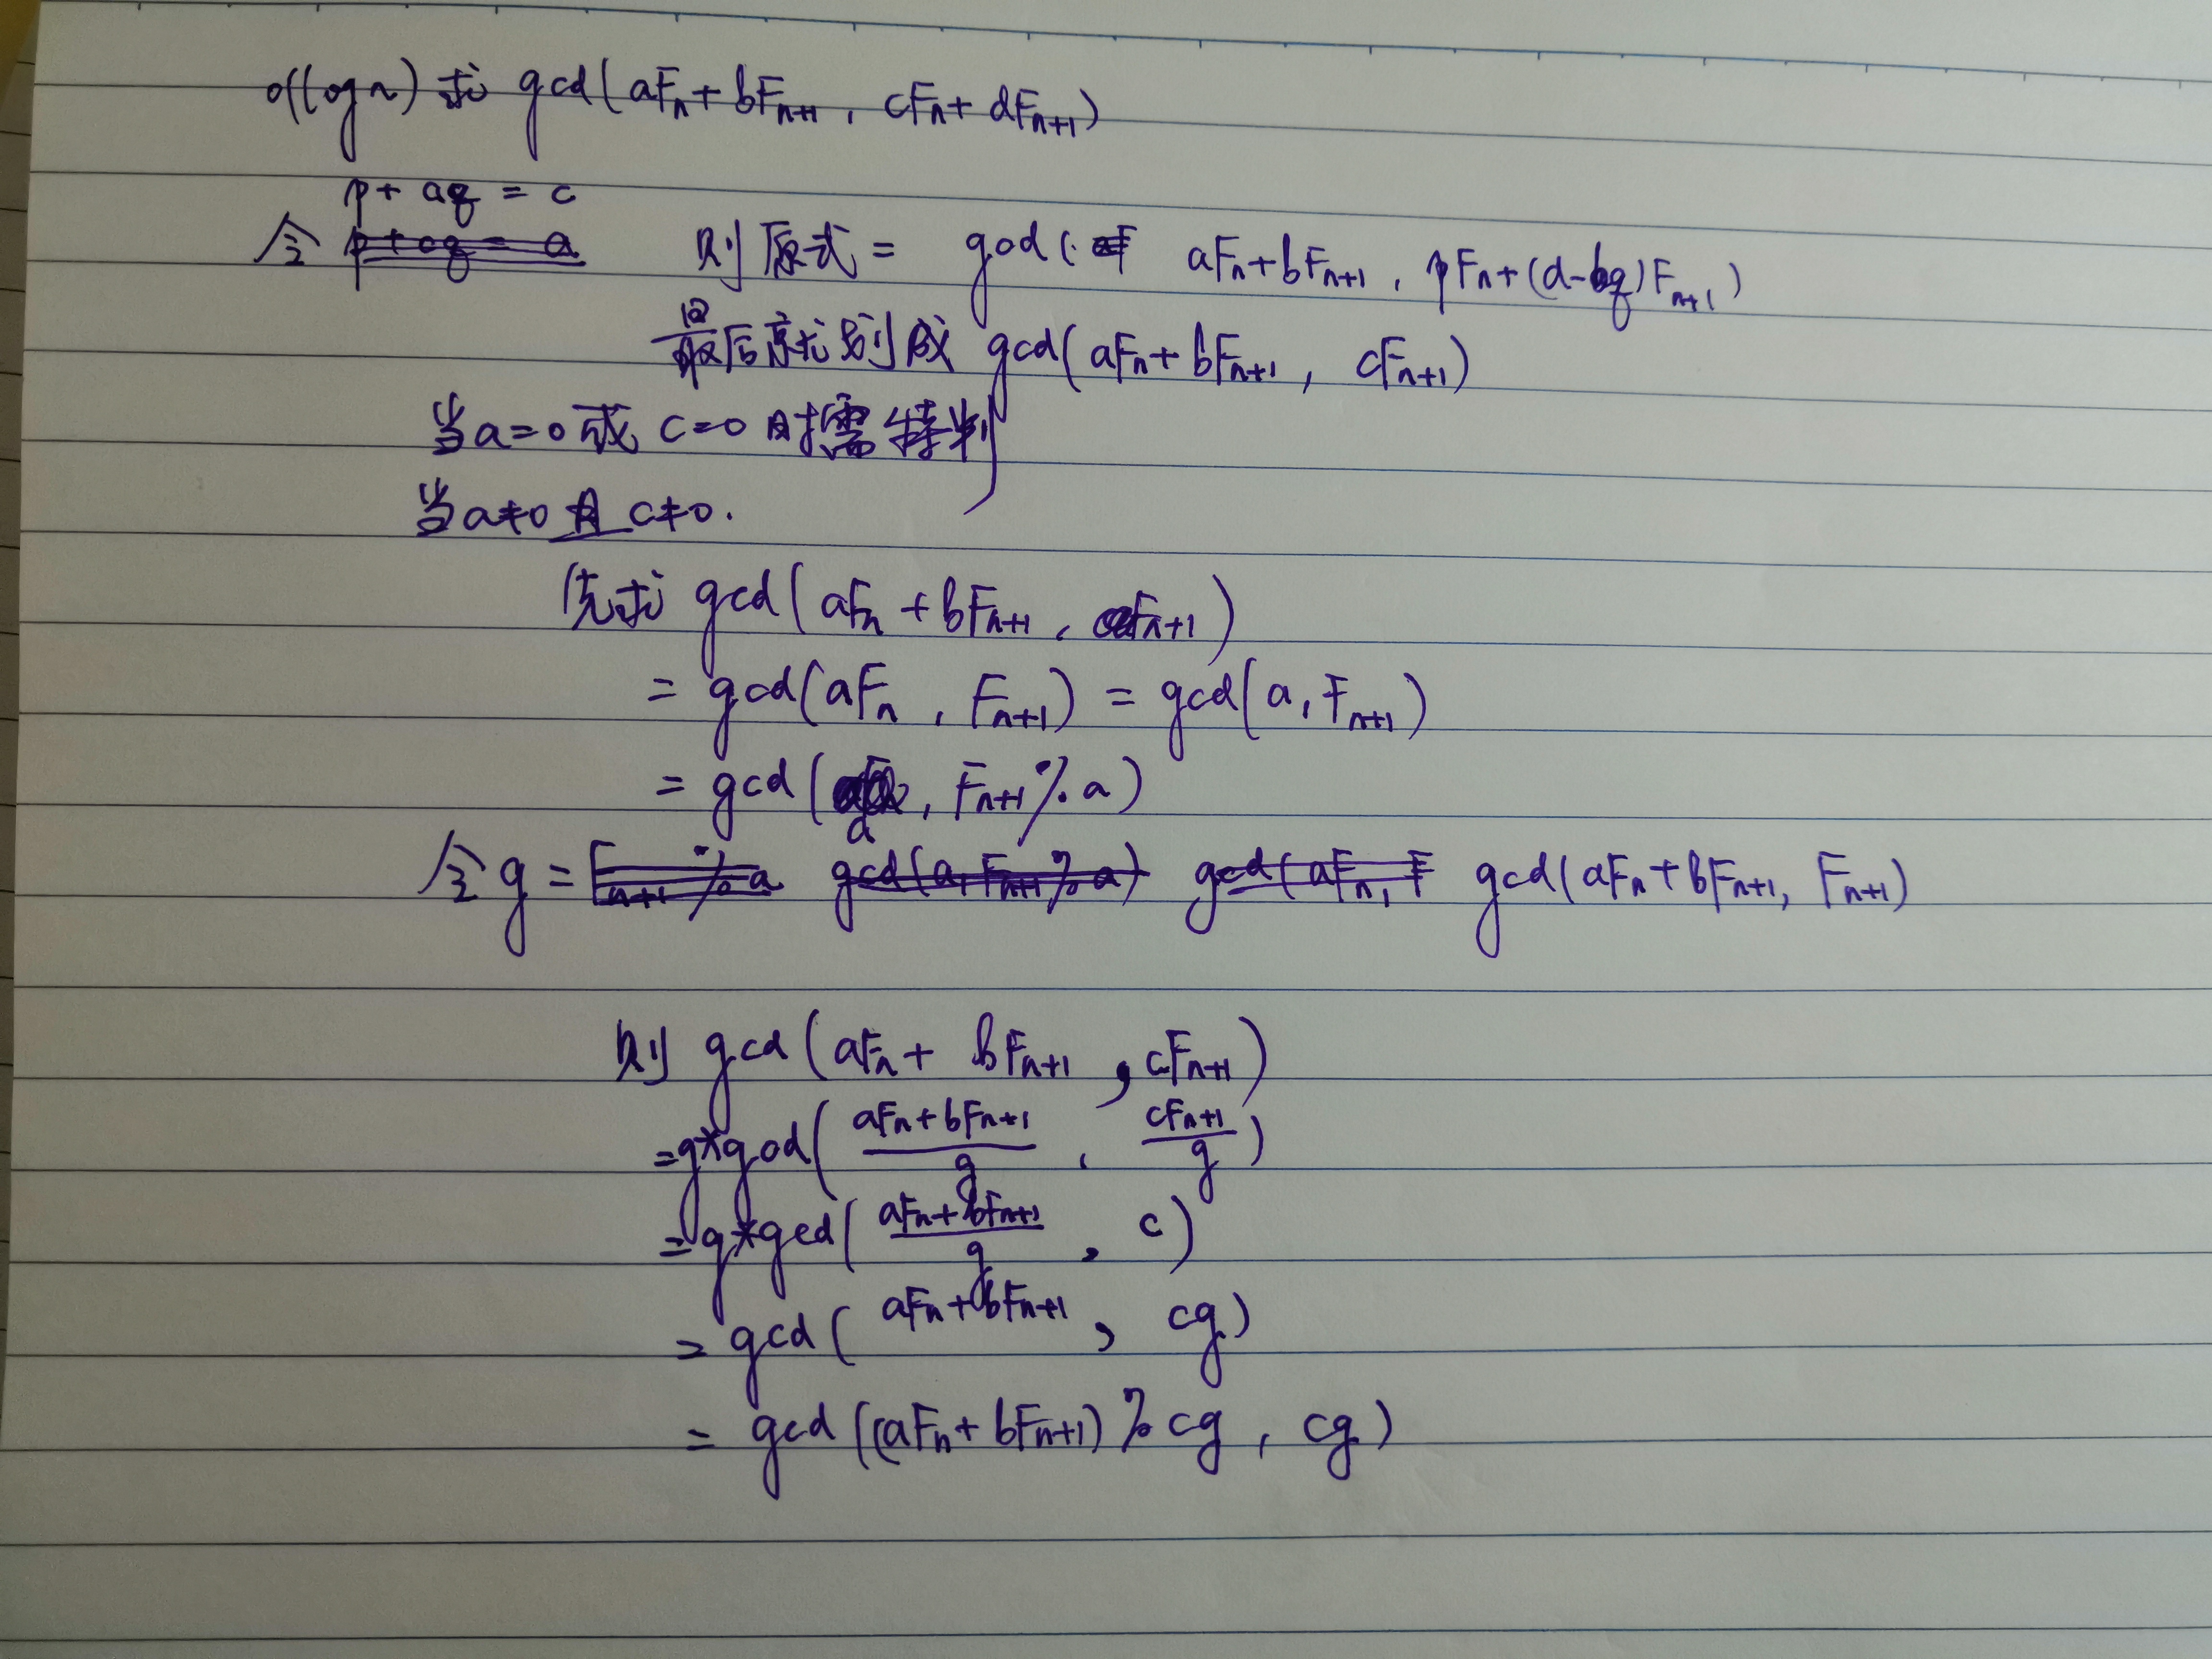 O(logn) 求 gcd(aFn+bFn+1, cFn+dFn+1)
p+aq=c
令 p+cq=a 则原式= gcd( aFn+bFn+1, pFn+(d-bq)Fn+1)
最后就划成 gcd(aFn+bFn+1, cFn+1)
当a=0或c=0时需特判
当a≠0且c≠0.
先求 gcd(aFn+bFn+1, Fn+1)
=gcd(aFn, Fn+1)=gcd(a,Fn+1)
=gcd(a, Fn+1%a)
令g= Fn+1%a gcd(a,Fn+1%a) gcd(aFn, F gcd(aFn+bFn+1, Fn+1)
则 gcd(aFn+bFn+1, cFn+1)
=g*gcd((aFn+bFn+1)/g, cFn+1/g)
=g*gcd((aFn+bFn+1)/g, c)
=gcd(aFn+bFn+1, cg)
=gcd((aFn+bFn+1)%cg, cg)